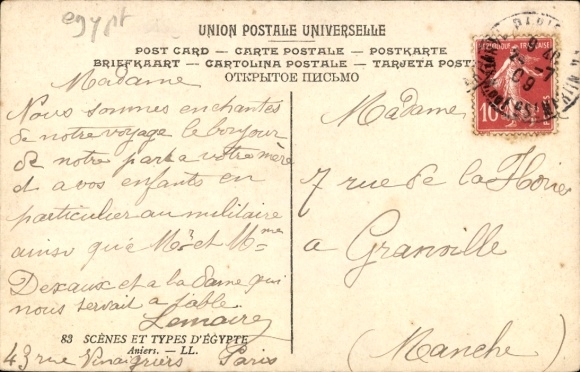 egypt
UNION POSTALE UNIVERSELLE
POST CARD — CARTE POSTALE — POSTKARTE
BRIEFKAART — CARTOLINA POSTALE — TARJETA POSTAL
ОТКРЫТОЕ ПИСЬМО
Madame
Nous sommes enchantés
de notre voyage le bonjour
de notre part a votre mère
et a vos enfants en
particulier au militaire
ainsi que Mr et Mme
Dexaux et a la dame qui
nous servait a table
Lemaire
83 SCÈNES ET TYPES D'ÉGYPTE
Aniers. — LL.
43 rue Vinaigriers Paris
Madame
7 rue de la
a Granville
(Manche)
10
09